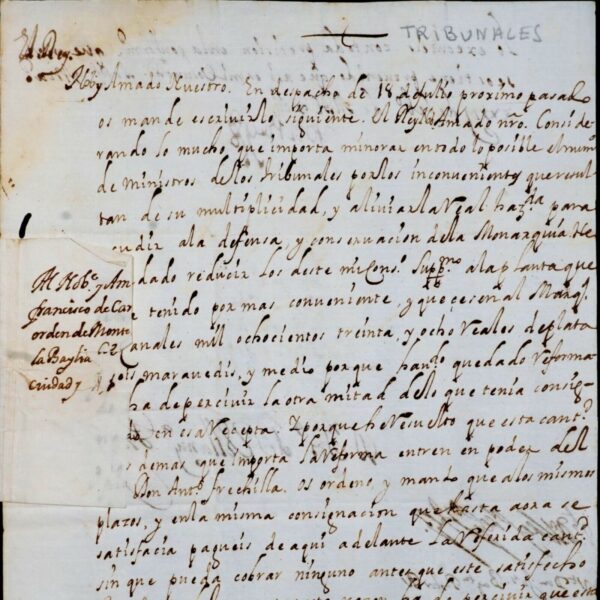 TRIBUNALES
El Rey.
Amado Nuestro. En despacho de 18 de Julio proximo pasado
os mande escriuir lo siguiente. El Rey Amado nro. Conside-
rando lo mucho que importa minorar en todo lo posible el num.
de Ministros de los Tribunales por los inconuenientes que resul
tan de su multiplicidad, y aliuiar la Real haz.da para
acudir ala defensa, y conseruacion dela Monarquia. He
dado reducir los deste mi Cons.o Sup.mo ala planta que
e tenido por mas conveniente, y que cesen al Marq.
canales mil ochocientos treinta, y ocho Reales de plata
marauedis, y medio porque hau.do quedado reforma
ha de perciuir la otra mitad delo que tenia consig-
en esa Recepta. Y porque he Resuelto que esta cant.d
demas que importa la Reforma entren en poder del
Don Ant.o frechilla. Os ordeno, y mando que alos mismos
plazos, y enla misma consignacion que hasta aora se
satisfacia pagueis de aqui adelante la Referida cant.d
sin que pueda cobrar ninguno antes que este satisfecho
ha de perciuir que esta
Al Nob.e y Am
francisco de Car
orden de Monte
la Baylia
ciudad